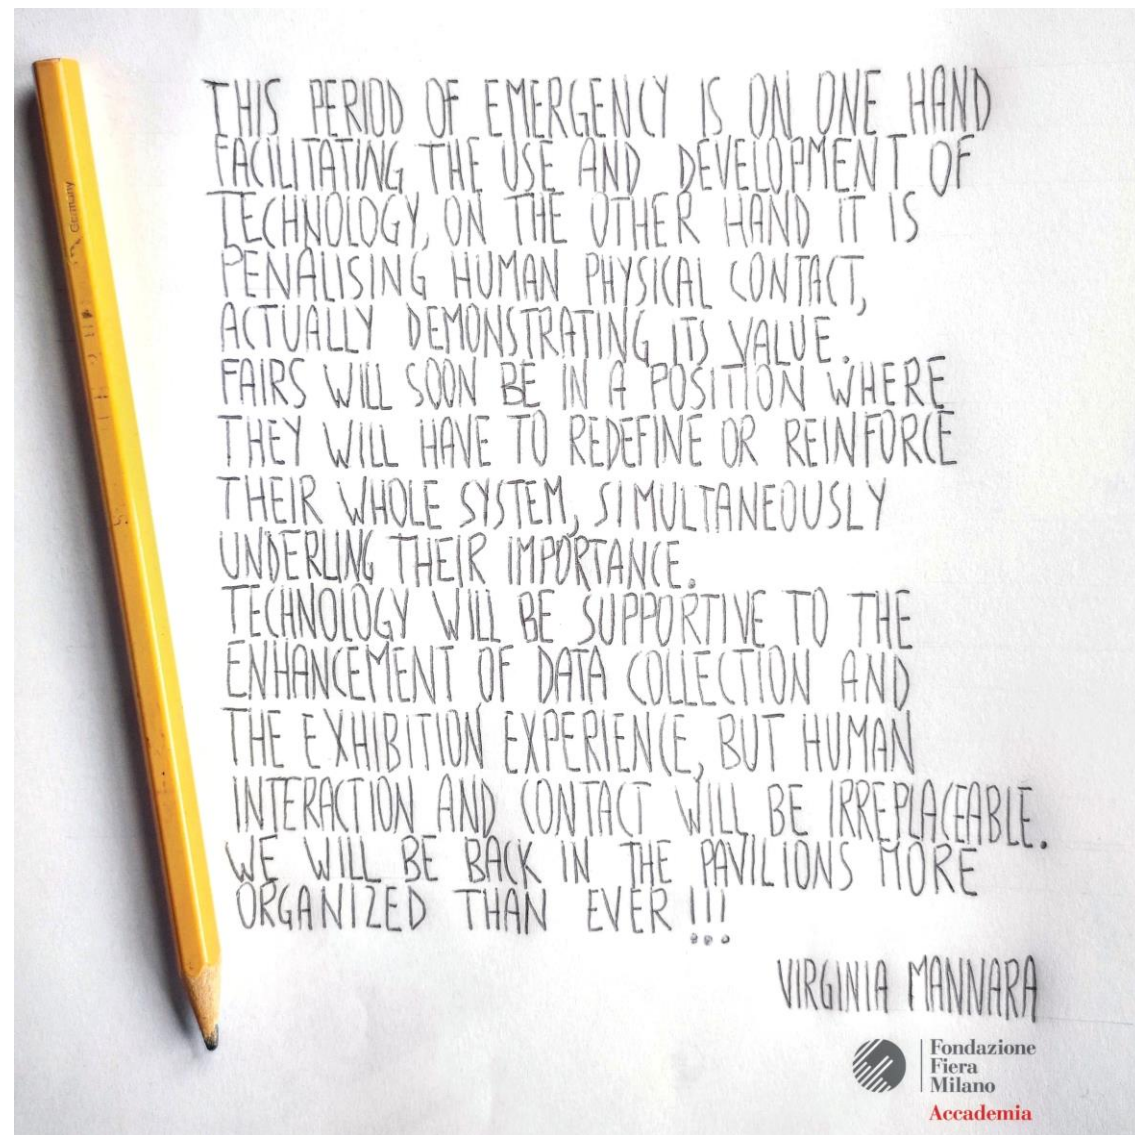 THIS PERIOD OF EMERGENCY IS ON ONE HAND
FACILITATING THE USE AND DEVELOPMENT OF
TECHNOLOGY, ON THE OTHER HAND IT IS
PENALISING HUMAN PHYSICAL CONTACT,
ACTUALLY DEMONSTRATING ITS VALUE.
FAIRS WILL SOON BE IN A POSITION WHERE
THEY WILL HAVE TO REDEFINE OR REINFORCE
THEIR WHOLE SYSTEM, SIMULTANEOUSLY
UNDERLING THEIR IMPORTANCE.
TECHNOLOGY WILL BE SUPPORTIVE TO THE
ENHANCEMENT OF DATA COLLECTION AND
THE EXHIBITION EXPERIENCE, BUT HUMAN
INTERACTION AND CONTACT WILL BE IRREPLACEABLE.
WE WILL BE BACK IN THE PAVILIONS MORE
ORGANIZED THAN EVER!!!
VIRGINIA MANNARA
Fondazione
Fiera
Milano
Accademia
Germany